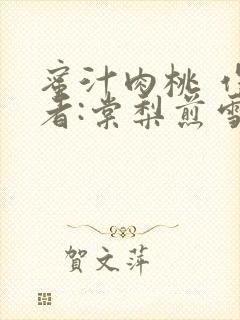 蜜汁肉桃
者:棠梨煎雪
賀文萍